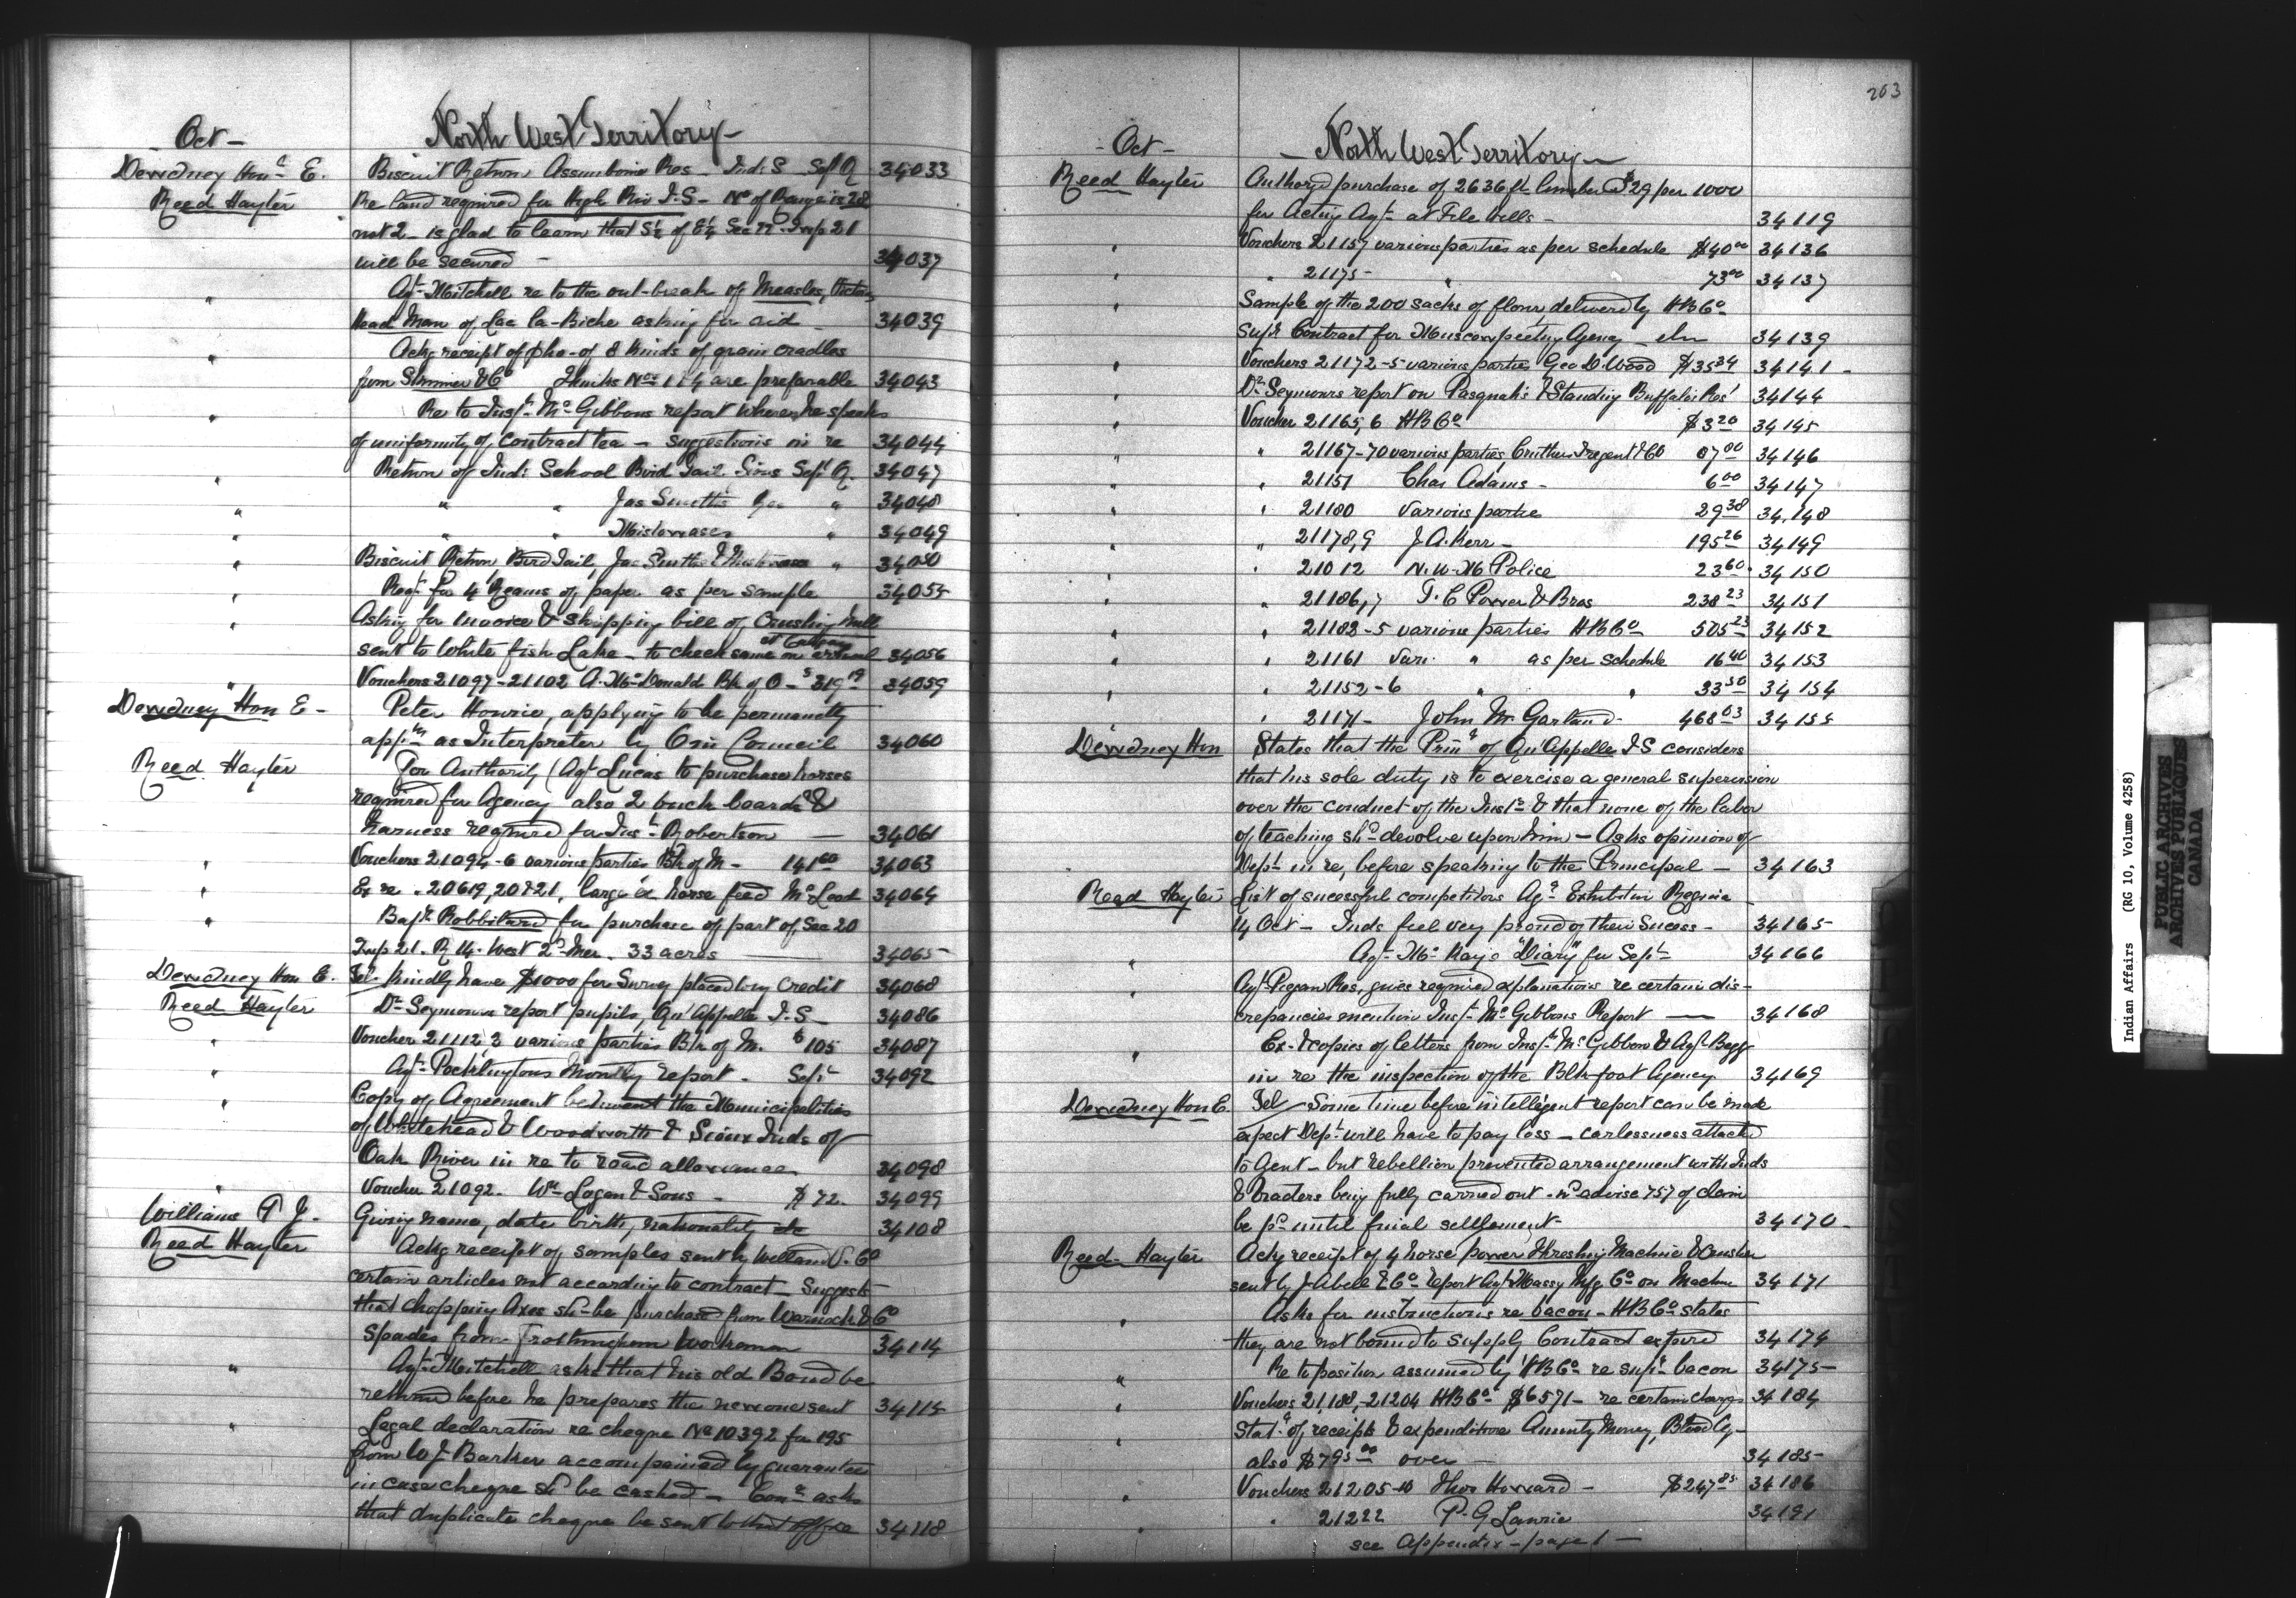 Oct -
North West Territory -
Dewdney Honl E. Biscuit Return Assiniboine Res - Ind. S Sept Q 34033
Reed Hayter Re land required for High Riv I.S - No of Range is 28
not 2 - is glad to learn that S½ of Sec 22 Twp 21
will be secured - 34037
" Agt Mitchell re to the out-break of Measles,
Head Man of Lac la-Biche asking for aid - 34039
" Ackg receipt of pho- of 8 kinds of grain cradles
from & Co Thinks Nos 1 & 4 are preferable 34043
" Re to Inspr McGibbons report where he speaks
of uniformity of contract tea - suggestions in re 34044
" Return of Ind: School Bird Tail Sioux Sept Q. 34047
" " " Jas Smiths " 34048
" " " Mistowases " 34049
" Biscuit Return Bird Tail, Jas Smiths & " 34050
" Reqn for 4 Reams of paper as per sample 34055
" Asking for invoice & shipping bill of Crushing Mill
sent to White fish Lake - to check same on arrival at Calgary 34056
" Vouchers 21097-21102 A. McDonald Bk of O - $319.19 34059
Dewdney Hon E - Peter Hourie, applying to be permanently
appt as Interpreter by O in Council 34060
Reed Hayter For Authority (Agt Lucas to purchase horses
required for Agency also 2 buck boards &
harness required for Inst Robertson - 34061
" Vouchers 21094-6 various parties Bk of M - 141.60 34063
" Ex re . 20619, 20821, large ex horse feed McLeod 34064
" Bapt Robbilard for purchase of part of Sec 20
Twp 21. R 14. West 2d Mer. 33 acres - 34065
Dewdney Hon E. Tel- kindly have $1000 for Survey placed to my Credit 34068
Reed Hayter Dr Seymours report pupils, Qu'Appelle I.S - 34086
" Voucher 21112'3 various parties Bk of M. $105 34087
" Agt Pocklingtons Monthly report - Sept 34092
" Copy of Agreement between the Municipalities
of Whitehead & Woodworth & Sioux Inds of
Oak River in re to road allowance 34098
" Voucher 21092. Wm Logan & Sons - $72. 34099
Williams P J. Giving name, date birth, nationality etc 34108
Reed Hayter Ackg receipt of samples sent by Welland V. Co
certain articles not according to contract - Suggests
that chopping Axes shd be purchased from Warnock & Co
Spades from Frothingham Workman 34114
" Agt Mitchell asks that his old Bond be
returned before he prepares the new one sent 34115
" Legal declaration re cheque No 10392 for 195
from W J Barker accompanied by guarantee
in case cheque shd be cashed - asks
that duplicate cheque be sent to that Office 34118
263
- Oct -
- North West Territory -
Reed Hayter Authory'd purchase of 2636 ft lumber @ $29 per 1000
for Acting Agt at File hills - 34119
" Vouchers 21157 various parties as per schedule $40.00 34136
" " 21175 - " 73.00 34137
" Sample of the 200 sacks of flour delivered by HBCo
Contract for Muscowpectung Agency - 34139
" Vouchers 21172-5 various parties Geo D. Wood $35.34 34141 -
" Dr Seymours report on Pasquah's & Standing Buffalo's Res' 34144
" Voucher 21165,6 HBCo $3.20 34145
" " 21167-70 various parties, & Co 87.00 34146
" " 21151 Chas Adams - 6.00 34147
" " 21180 Various partie 29.38 34.148
" " 21178,9 J. A. Kerr - 195.26 34149
" " 21012 N.W.M Police 23.60 34150
" " 21186,7 T. C Power & Bros 238.23 34151
" " 21182-5 various parties HBCo 505.23 34152
" " 21161 Vari. " as per schedule 16.40 34153
" " 21152-6 " " 33.50 34154
" " 21171 - John M Garland - 468.03 34155
Dewdney Hon States that the Prinl of Qu'Appelle I S considers
that his sole duty is to exercise a general supervision
over the conduct of the Instn & that none of the labor
of teaching shd devolve upon him - Asks opinion of
Dept in re, before speaking to the Principal - 34163
Reed Hayter List of sucessful competitors Agl Exhibition Regina
14 Oct - Inds feel very proud of their Sucess - 34165
" Agt McKays "Diary" for Sept 34166
" Agt Piegan Res, gives required explanations re certain dis-
crepancies mention Inspt McGibbons Report - 34168
" Ex-& copies of letters from Inspt McGibbon & Agt Begg
in re the inspection of the Blk-foot Agency 34169
Dewdney Hon E. Tel - Some time before intellegent report can be made
expect Dept will have to pay loss - carlessness attached
to Agent - but rebellion prevented arrangement with Inds
& traders being fully carried out - wd advise 75% of claim
be pd until final settlement - 34170 -
Reed - Hayter Ackg receipt of 4 horse power Threshing Machine & Crusher
sent by J Abell & Co report Agt Massy Mfg Co on Machine 34171
" Asks for instructions re bacon - HBCo states
they are not bound to supply Contract expired 34174
" Re to position assumed by HBCo re bacon 34175 -
" Vouchers 21188,-21204 HBCo $6571 - re certain charges 34184
" Statt of receipts & expenditure Annuity Money, Blood Ay -
also $795.00 over - 34185 -
" Vouchers 21205-10 Thos Howard - $247.85 34186
" " 21222 P. G Laurie 34191
see Appendix - page 1 -
Indian Affairs (RG 10, Volume 4258)
PUBLIC ARCHIVES
ARCHIVES PUBLIQUES
CANADA